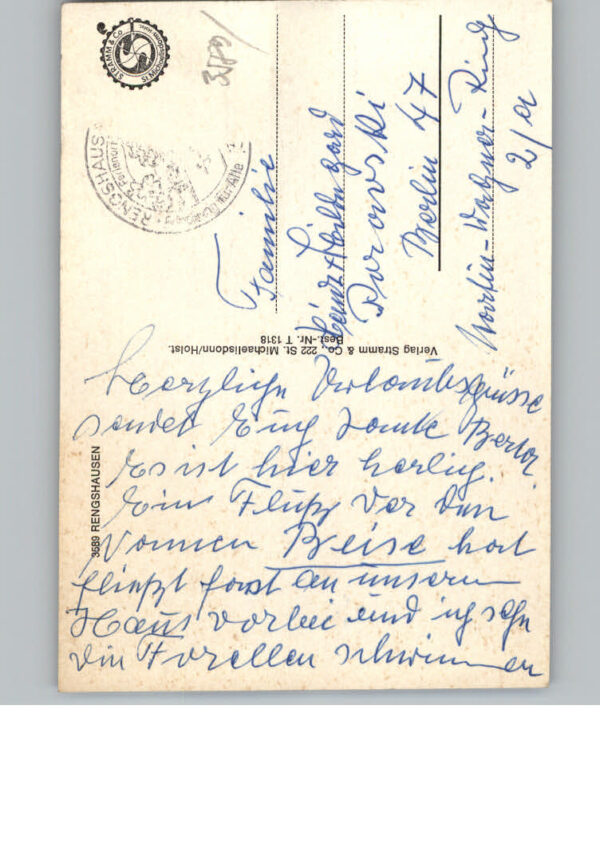 STRAMM & Co
St. Michaelisdonn
3589
RENGSHAUSEN
Ferienort
für Alle
Familie
Heinz + Hildegard
Berlin 47
Martin-Wagner-Ring
2/a
Verlag Stramm & Co., 222 St. Michaelisdonn/Holst.
Best.-Nr. T 1318
3589 RENGSHAUSEN
Herzliche Urlaubsgrüsse
sendet Euch Tante Berta.
Es ist hier herlich.
Ein Fluß der den
Namen Beise hat
fließt fast an unserm
Haus vorbei und ich sehe
die Forellen schwimmen